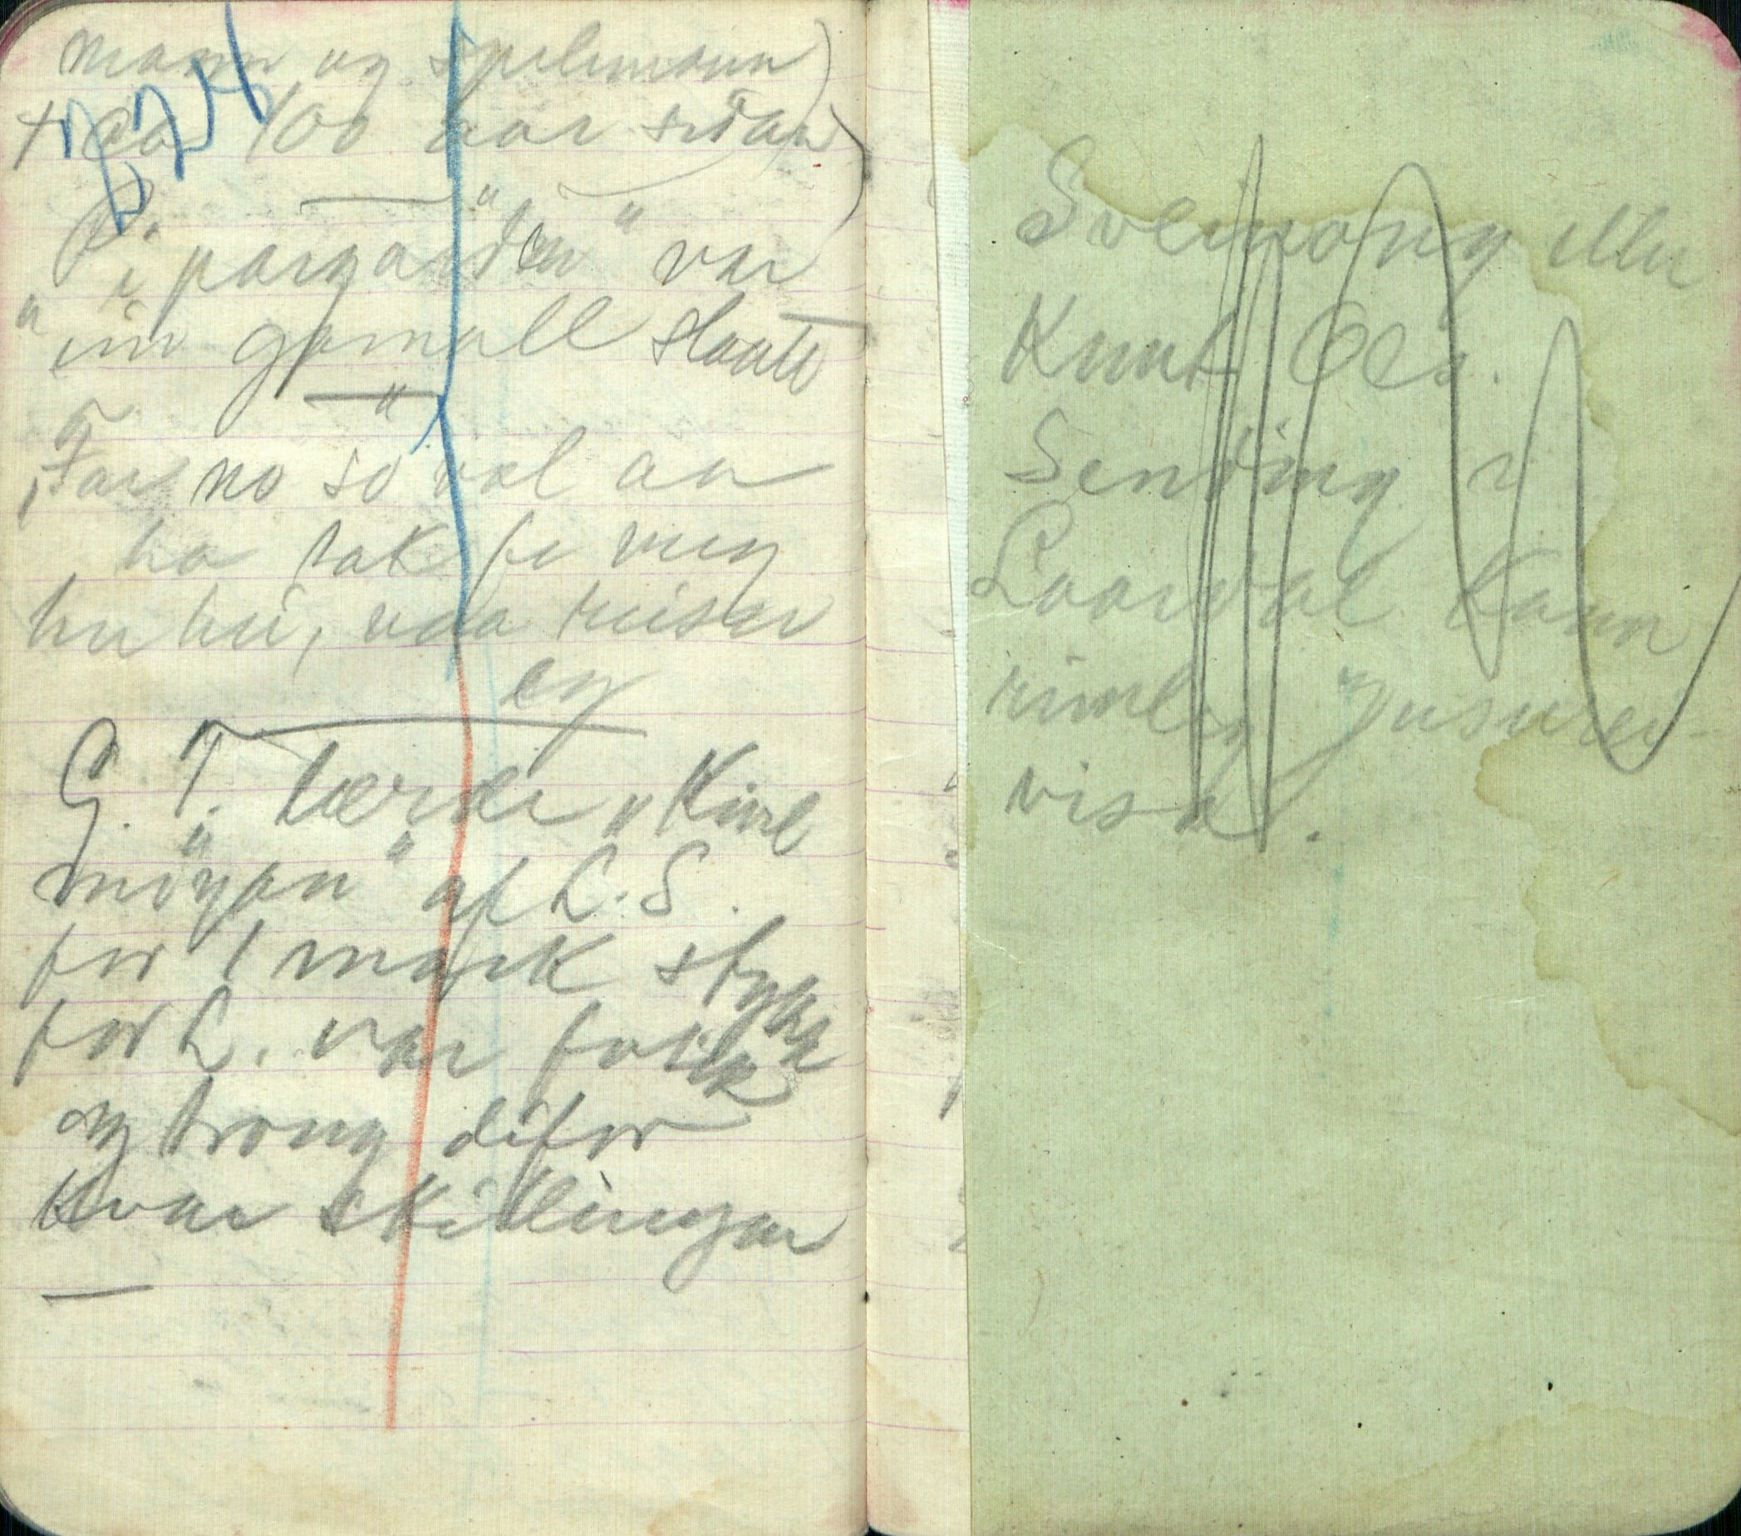 mann og spelemann)
+ ca 100 aar sidan)
P.
"i pargarden" var
ein gamall slaatt
"Far no so vel aa
ha tak fe meg
hu hei, naa reiser
eg
G. T. lærde "Kivle
møyan" af L. S.
for 1 mark stykke
for L. var fatik
og trong difor
kvar skillingen
Sveinong eller
Knut Ols.
Sending i
Laardal kann
rimleg
visa.